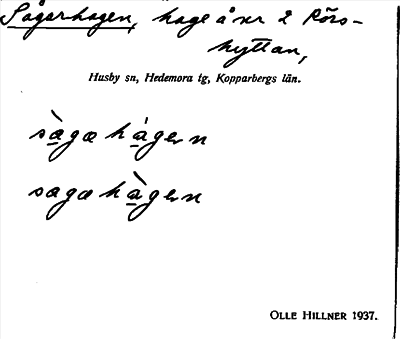 Sågarhagen, hage å nr 2 Rörs-
hyttan,
Husby sn, Hedemora tg, Kopparbergs län.
sàgæ hágern
sagæ hàgern
OLLE HILLNER 1937.